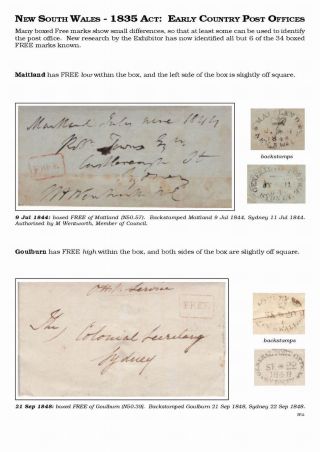 NEW SOUTH WALES - 1835 ACT: EARLY COUNTRY POST OFFICES
Many boxed Free marks show small differences, so that at least some can be used to identify
the post office. New research by the Exhibitor has now identified all but 6 of the 34 boxed
FREE marks known.
Maitland has FREE low within the box, and the left side of the box is slightly off square.
Maitland July nine 1844
FREE
Sydney
backstamps
9 Jul 1844: boxed FREE of Maitland (N50.57). Backstamped Maitland 9 Jul 1844, Sydney 11 Jul 1844.
Authorised by M Wentworth, Member of Council.
Goulburn has FREE high within the box, and both sides of the box are slightly off square.
O H M Service
FREE
The Colonial Secretary
Sydney
backstamps
SE 22
1848
21 Sep 1848: boxed FREE of Goulburn (N50.39). Backstamped Goulburn 21 Sep 1848, Sydney 22 Sep 1848.